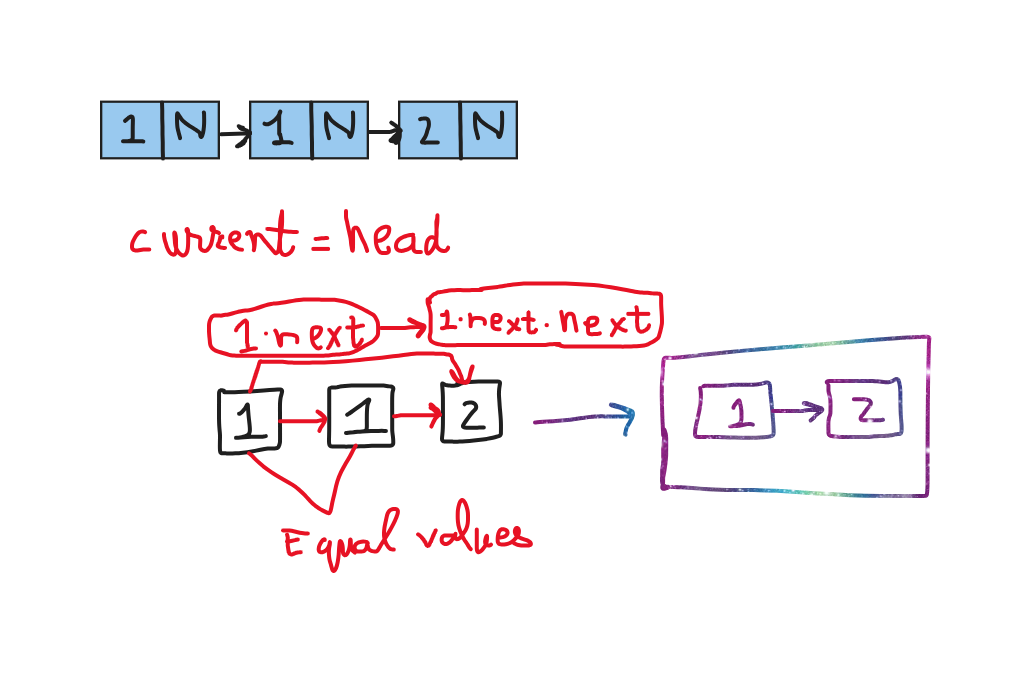 1 N 1 N 2 N
current = head
1.next 1.next.next
1 1 2 1 2
Equal values